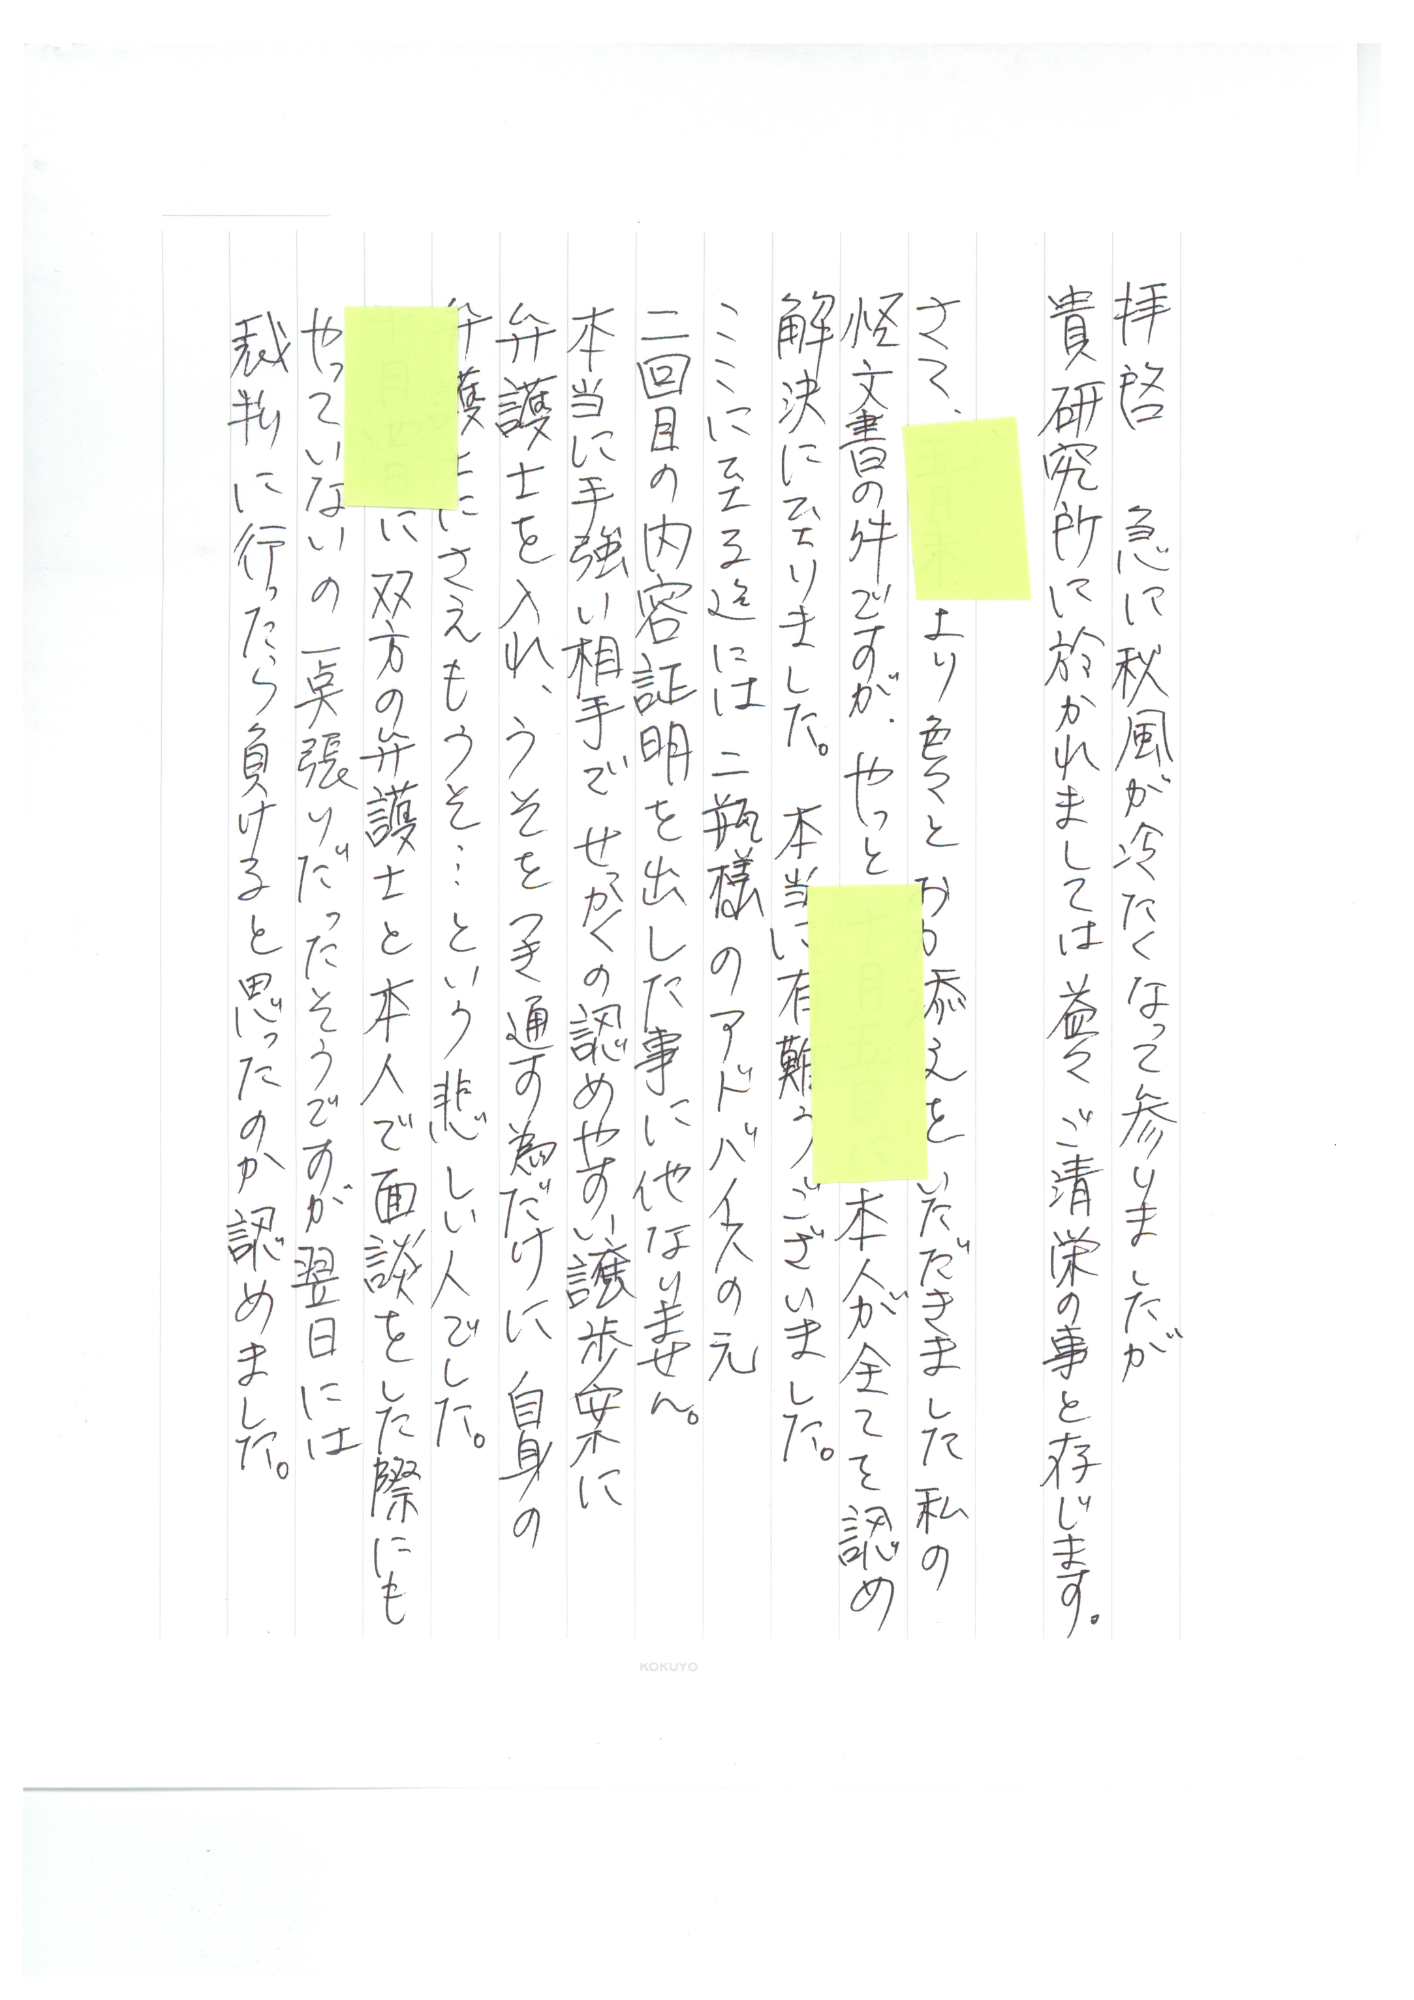 拝啓　急に秋風が冷たくなって参りましたが
貴研究所に於かれましては益々ご清栄の事と存じます。
さて、五月末より色々とお力添えをいただきました私の
怪文書の件ですが、やっと十月五日に本人が全てを認め
解決に至りました。本当に有難うございました。
ここに至る迄には二瓶様のアドバイスの元
二回目の内容証明を出した事に他なりません。
本当に手強い相手でせっかくの認めやすい譲歩案に
弁護士を入れ、うそをつき通す為だけに自身の
弁護士にさえもうそ…という悲しい人でした。
十月四日に双方の弁護士と本人で面談をした際にも
やっていないの一点張りだったそうですが翌日には
裁判に行ったら負けると思ったのか認めました。
KOKUYO